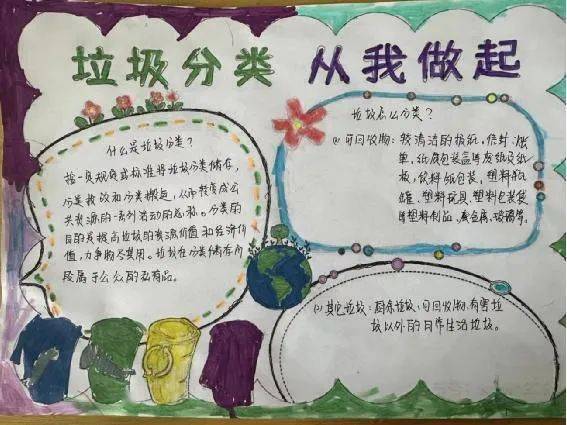 垃圾分类 从我做起
什么是垃圾分类?
按一定规定或标准将垃圾分类储存,
分类投放和分类搬运,从而转变成公
共资源的一系列活动的总称。分类的
目的是提高垃圾的资源价值和经济价
值,力争物尽其用。垃圾在分类储存阶
段属于公众的私有品。
垃圾怎么分类?
(1)可回收物:较清洁的报纸,信封,账
单,纸质包装盒等废纸及纸
板,饮料纸包装,塑料瓶
罐,塑料玩具,塑料包装袋
等塑料制品,废金属,玻璃等。
(2)其他垃圾:厨余垃圾,可回收物,有害垃
圾以外的日常生活垃圾。